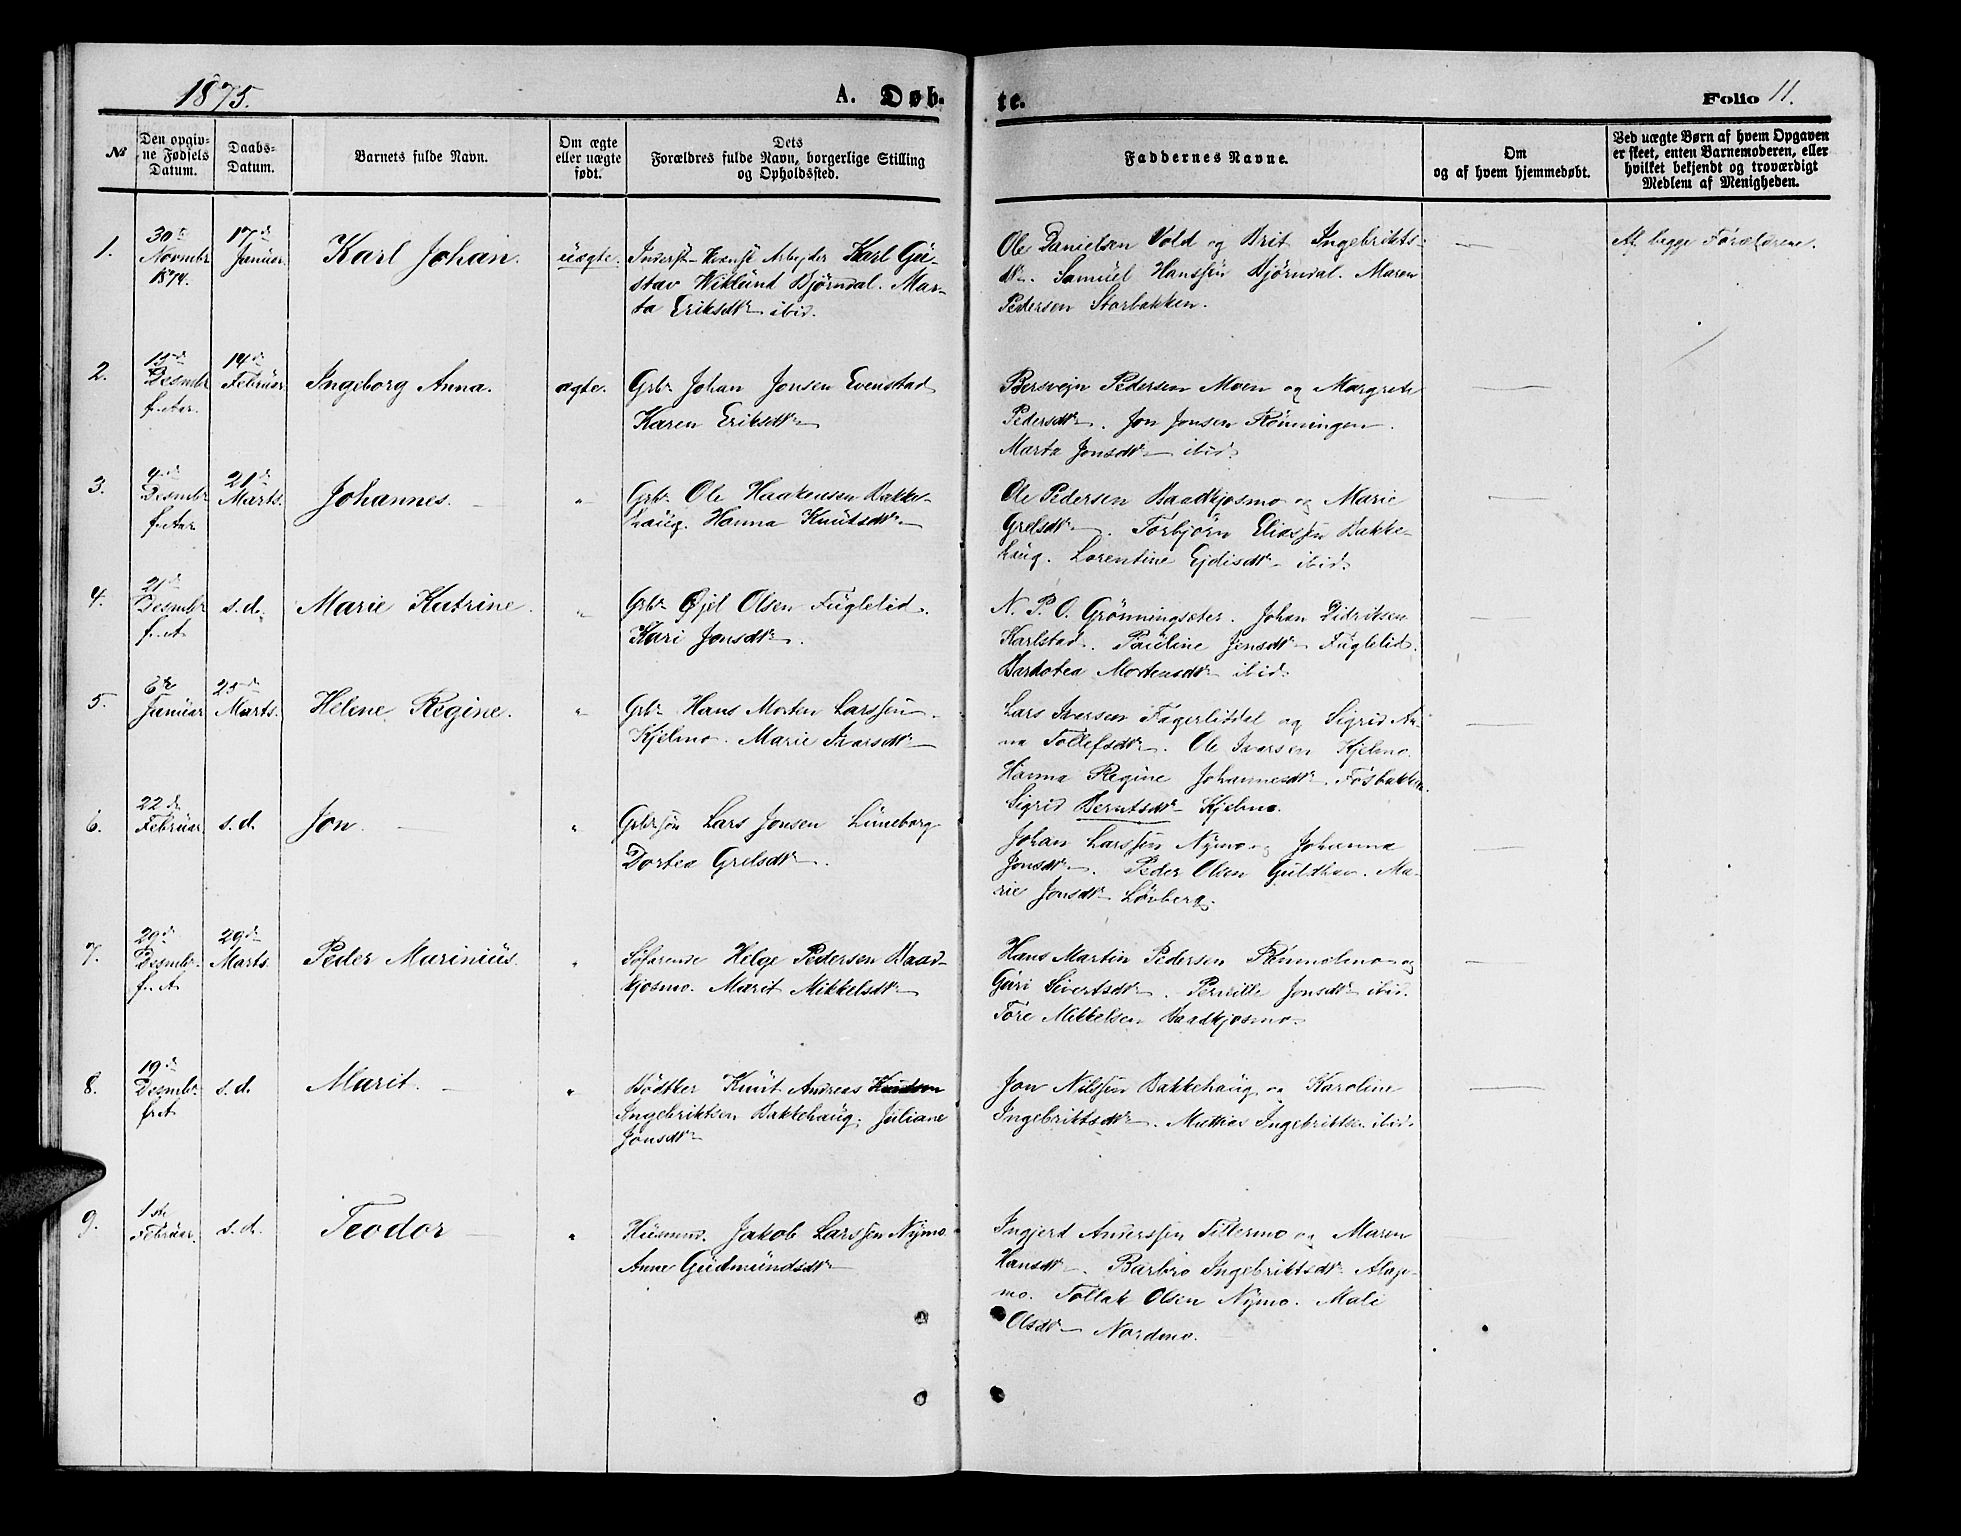 1875.
A. Døb-
te.
Folio 11.
№
Den opgiv-
ne Fødsels
Datum.
Daabs-
Datum.
Barnets fulde Navn.
Om ægte
eller uægte
født.
Dets
Forældres fulde Navn, borgerlige Stilling
og Opholdssted.
Faddernes Navne.
Om
og af hvem hjemmedøbt.
Ved uægte Børn af hvem Opgaven
er skeet, enten Barnemoderen, eller
hvilket bekjendt og troværdigt
Medlem af Menigheden.
1.
30te
Novmbr
1874.
17de
Januar.
Karl Johan.
uægte.
Arbejder Karl Gu-
stav Wiklund Bjørndal. Mar-
ta Eriksdtr ibid.
Ole Danielsen Vold og Brit Ingebrikts-
dtr. Samuel Hanssen Bjørndal. Maren
Pedersen Storbakken.
—
Af begge Forældrene.
2.
13de
Desmbr
f. Aar.
14de
Februar.
Ingeborg Anna.
ægte.
Grbr. Johan Jonsen Evenstad
Karen Eriksdtr
Bersvejn Pedersen Moen og Margrete
Pedersdtr. Jon Jonsen Rønningen.
Marta Jonsdtr ibid.
—
3.
4de
Desmbr
f. Aar
21de
Marts.
Johannes.
"
Grbr. Ole Haakensen Bakke-
haug. Hanna Knutsdtr
Ole Pedersen Baadkjosmo og Marie
Grelsdtr. Torbjørn Eliassen Bakke-
haug. Lorentine Ejdisdtr ibid.
—
4.
21de
Desmbr
f. A
s. d.
Marie Katrine.
"
Grbr. Øjel Olsen Fuglelid.
Kari Jonsdtr.
N. P. O. Grønningsæter. Johan Didriksen
Karlstad. Pauline Jensdtr Fuglelid.
Dardotea Mortensdtr ibid.
—
5.
6te
Januar
23de
Marts.
Heline Regine.
"
Grbr. Hans Morten Larssen
Kjelmo. Marie Ivarsdtr
Lars Iversen Fagerliddal og Sigrid An-
na Tollefsdtr. Ole Iversen Kjelmo.
Hanna Regine Johannesdtr Fosbakken.
Sigrid Berntsdtr Kjelmo.
—
6.
22de
Februar.
s. d.
Jon.
"
Grbrsøn Lars Jonsen Luneborg
Dortea Grelsdtr.
Johan Larssen Nymo og Johanna
Jonsdtr. Peder Olsen Guldhav. Ma-
rie Jonsdtr Løvberg.
—
7.
29de
Desmbr.
f. A
29de
Marts
Peder Marinius.
"
Søfarende Helge Pedersen Baad-
kjosmo. Marit Mikkelsdtr
Hans Martin Pedersen Rømmelmo og
Guri Sivertsdtr. Pernille Jonsdtr ibid.
Tore Mikkelsen Baadkjosmo.
—
8.
19de
Desmbr.
f. A
s. d.
Marit.
"
Bødtker Knut Andreas
Ingebriktsen Bakkehaug. Juliane
Jonsdtr
Jon Nilssen Bakkehaug og Karoline
Ingebriktsdtr. Mattias Ingebriktsen ibid.
—
9.
1ste
Februar.
s. d.
Teodor
"
Husmnd. Jakob Larssen Nymo.
Anne Gudmundsdtr
Ingjerd Anderssen Tellermo og Maren
Hansdtr. Barbro Ingebriktsdtr Alap-
mo. Tollak Olsen Nymo. Mali
Olsdtr Nordmo.